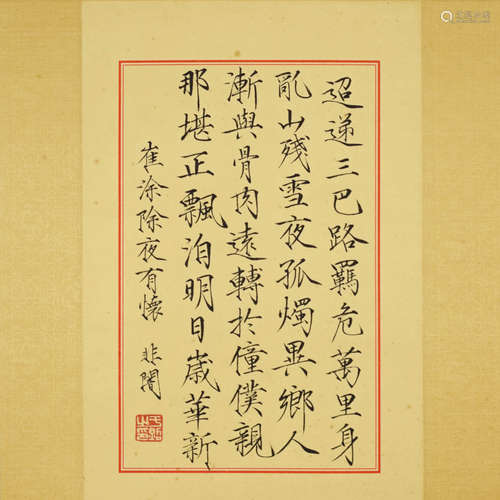 迢递三巴路羈危萬里身
亂山殘雪夜孤燭異鄉人
漸與骨肉遠轉於僮僕親
那堪正飄泊明日歲華新
崔涂除夜有懷 非闇